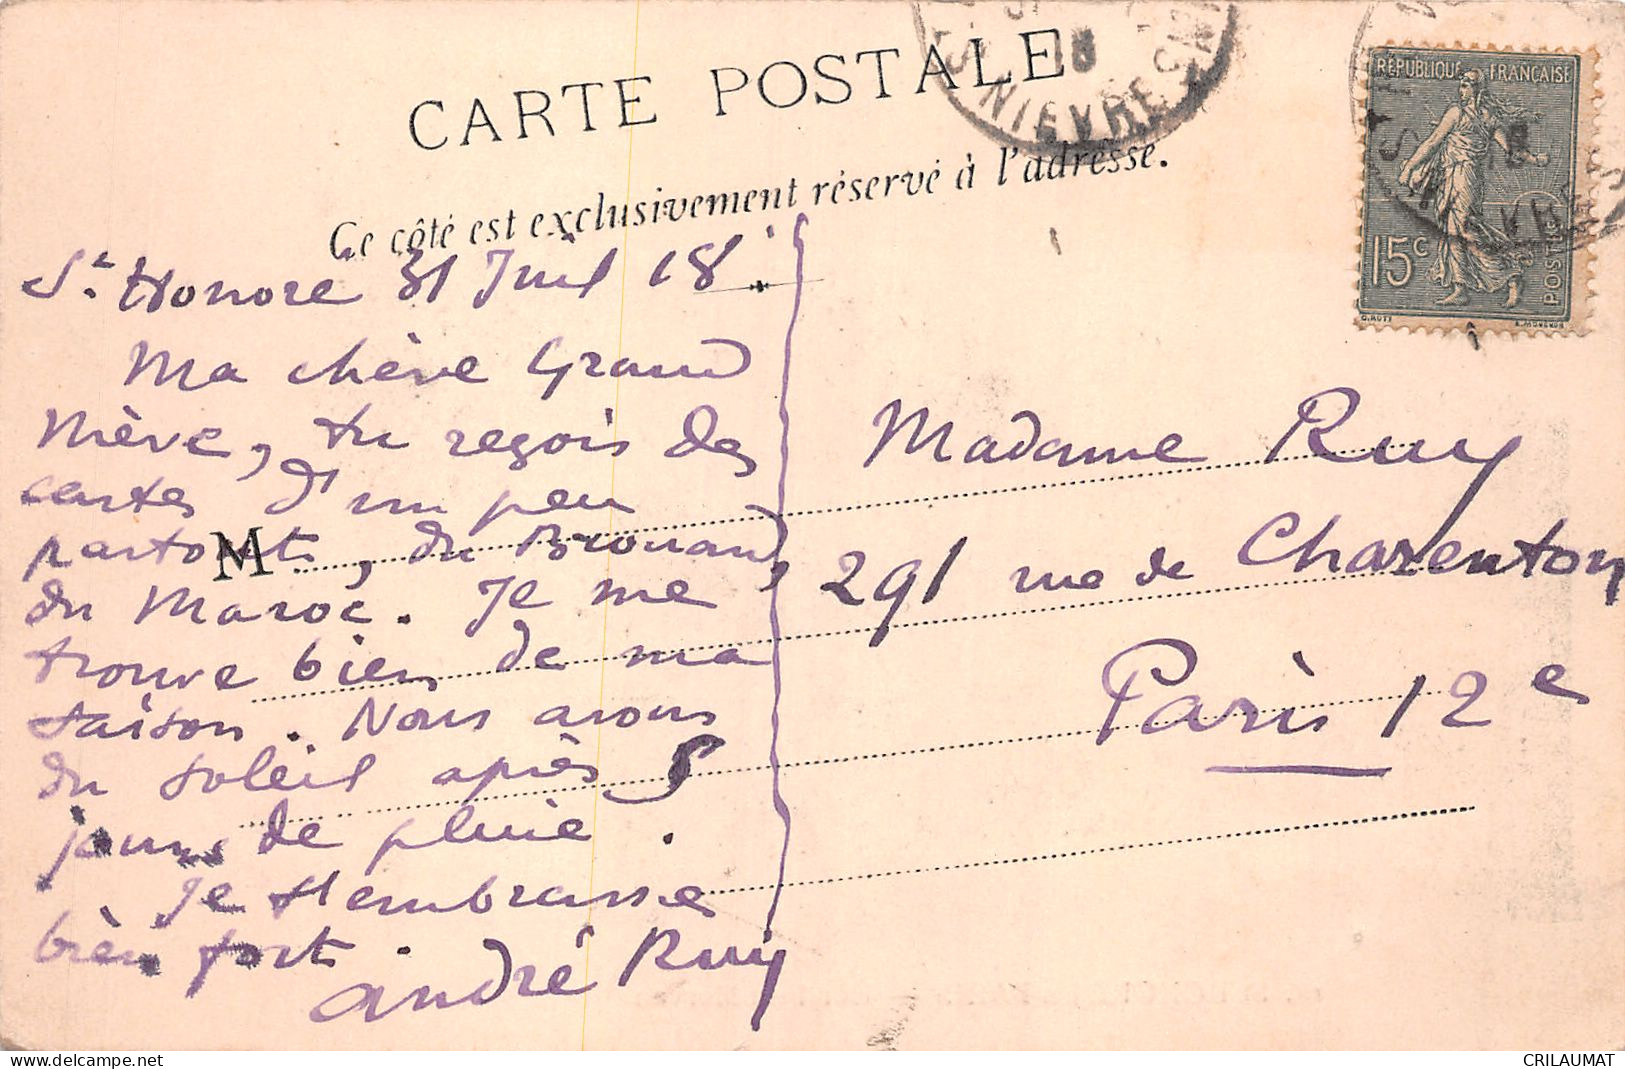 CARTE POSTALE
Ce côté est exclusivement réservé à l'adresse.
NIEVRE
18
RÉPUBLIQUE FRANÇAISE
15c
POSTES
O.ROTY
St. Honoré 31 Juil 18
Ma chère Grand
Mère, tu reçois des
cartes d'un peu
partout, du
du Maroc. Je me
trouve bien de ma
saison. Nous avons
du soleil après 5
jours de pluie.
Je t'embrasse
bien fort.
André Ruy
M
Madame Ruy
291 rue de Charenton
Paris 12e
www.delcampe.net
CRILAUMAT